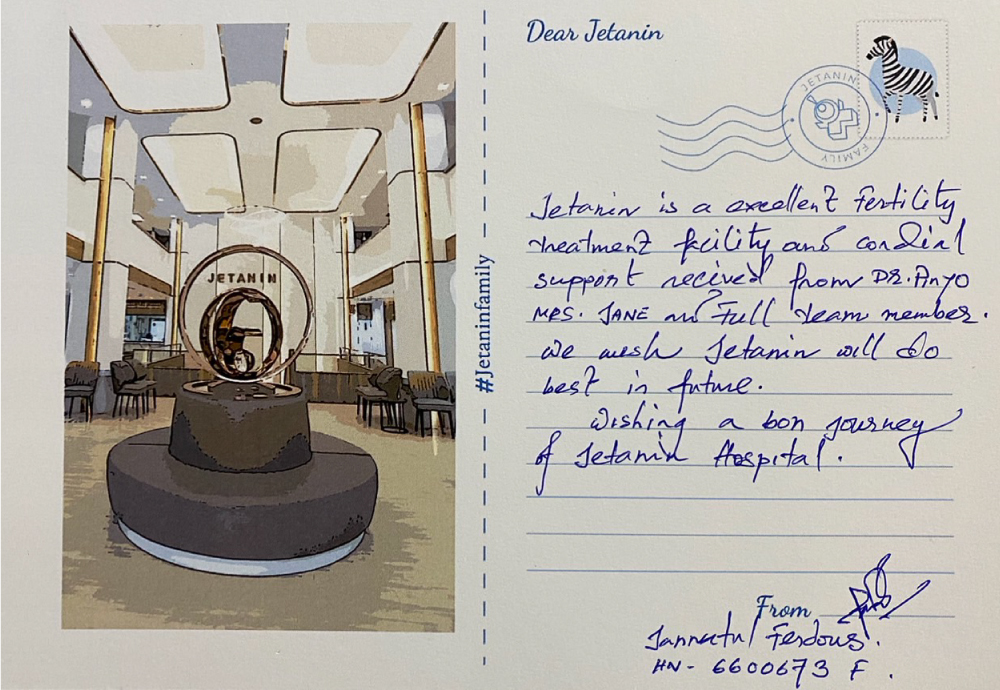 JETANIN
#Jetaninfamily
Dear Jetanin
JETANIN
FAMILY
Jetanin is a excellent Fertility
treatment fcility and cordial
support recived from DR. Anyo
MRS. JANE and Full team member.
we wish Jetanin will do
best in future.
Wishing a bon journey
of Jetanin Hospital.
From
Jannatul Ferdous.
HN- 6600673 F.